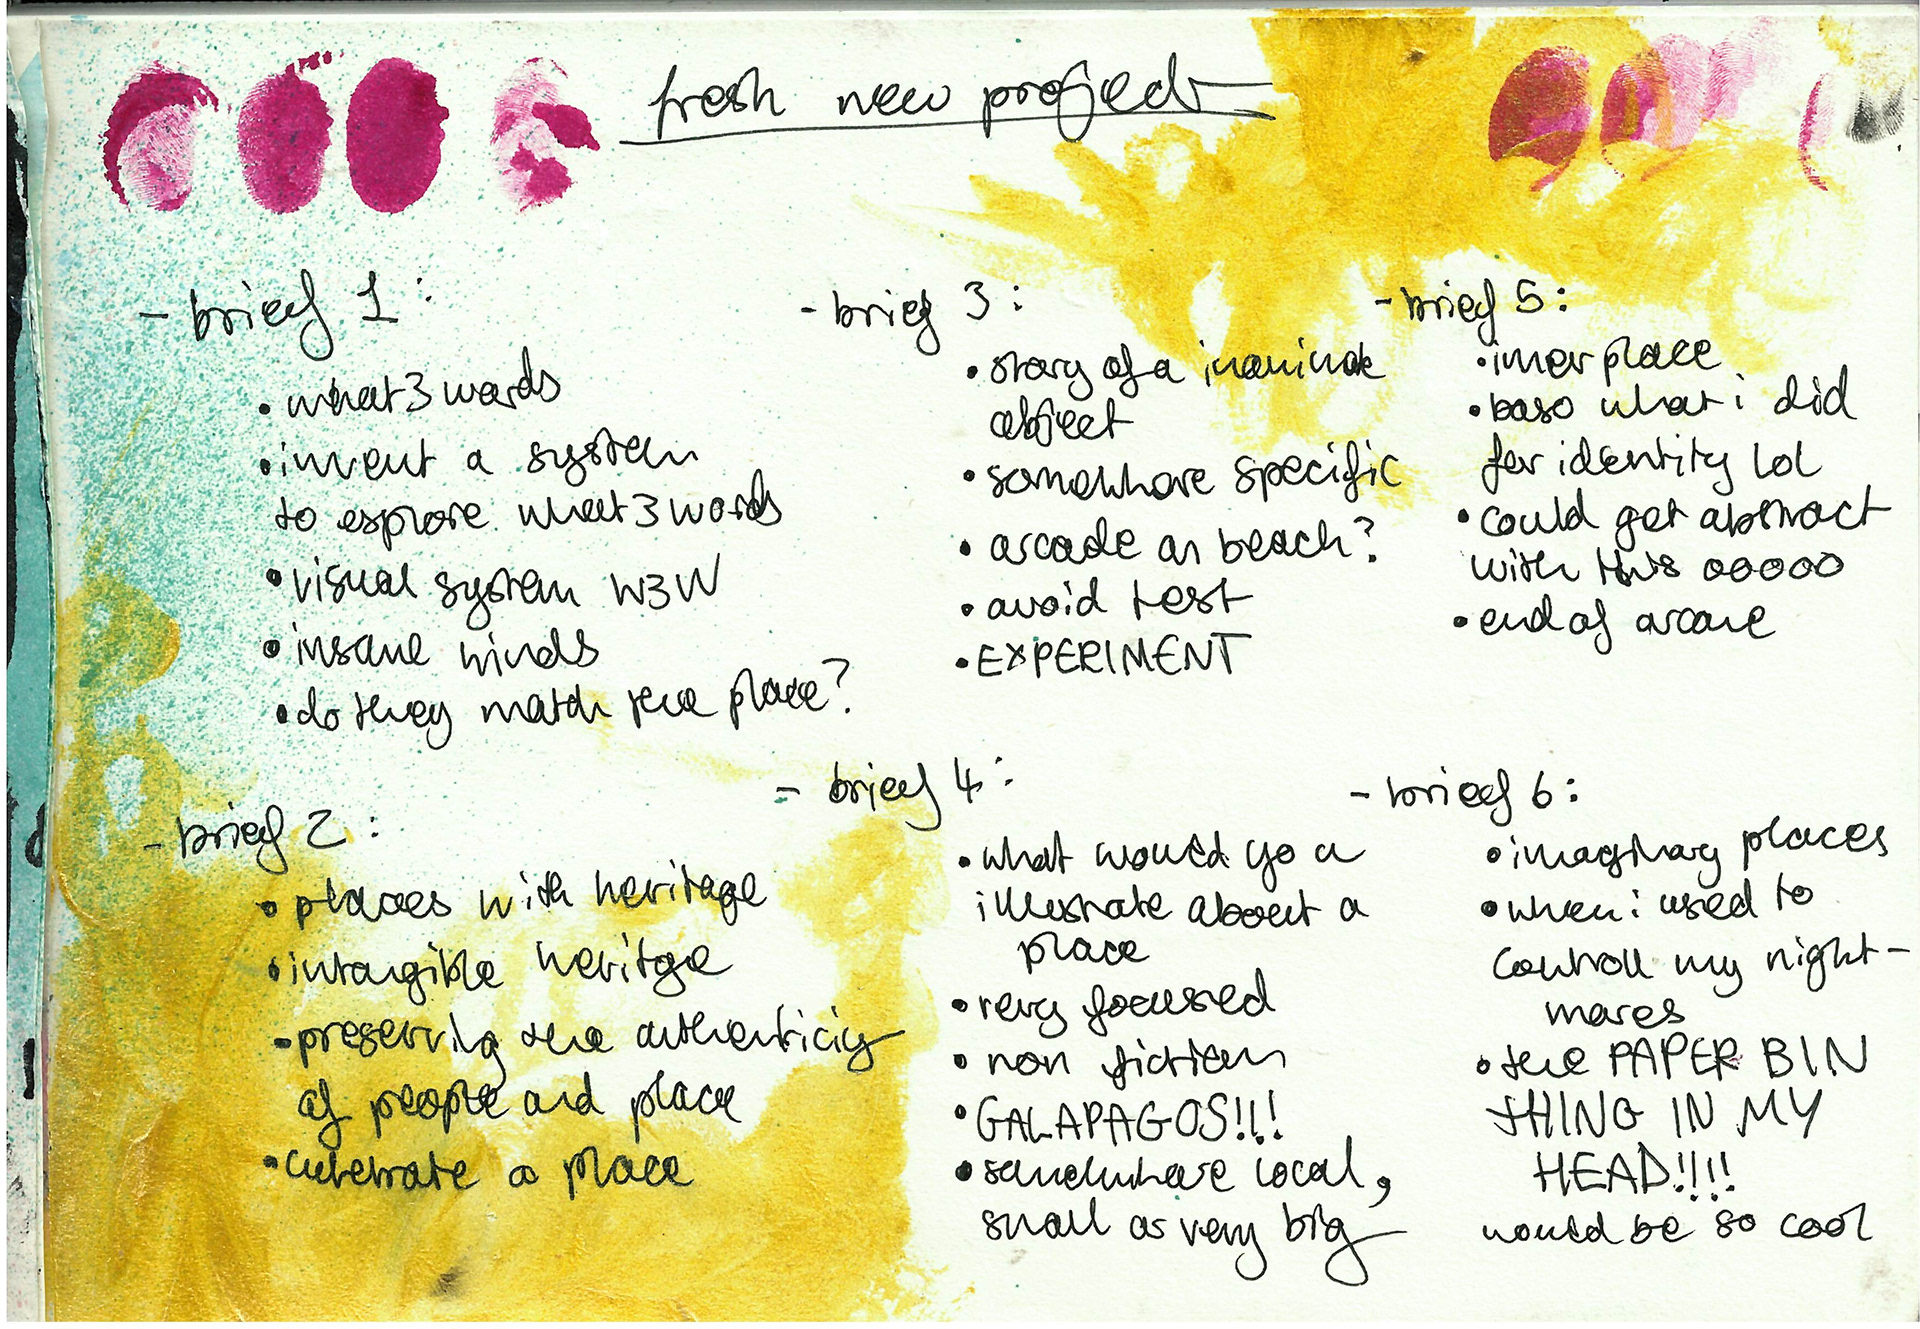 fresh new project
- brief 1:
• what3words
• invent a system
to explore what3words
• visual system W3W
• insane winds
• do they match the place?
- brief 2:
• places with heritage
• intangible heritge
• preserving the authenticiy
of people and place
• celebrate a place
- brief 3:
• story of a inanimate
object
• somewhere specific
• arcade on beach?
• avoid test
• EXPERIMENT
- brief 4:
• what would yo u
illustrate about a
place
• very focused
• non fiction
• GALAPAGOS!!!
• somewhere local,
small or very big
- brief 5:
• inner place
• baso what i did
for identity lol
• could get abstract
with this ooooo
• end of arcane
- brief 6:
• imaginary places
• when i used to
controll my night-
mares
• the PAPER BIN
THING IN MY
HEAD!!!!
would be so cool